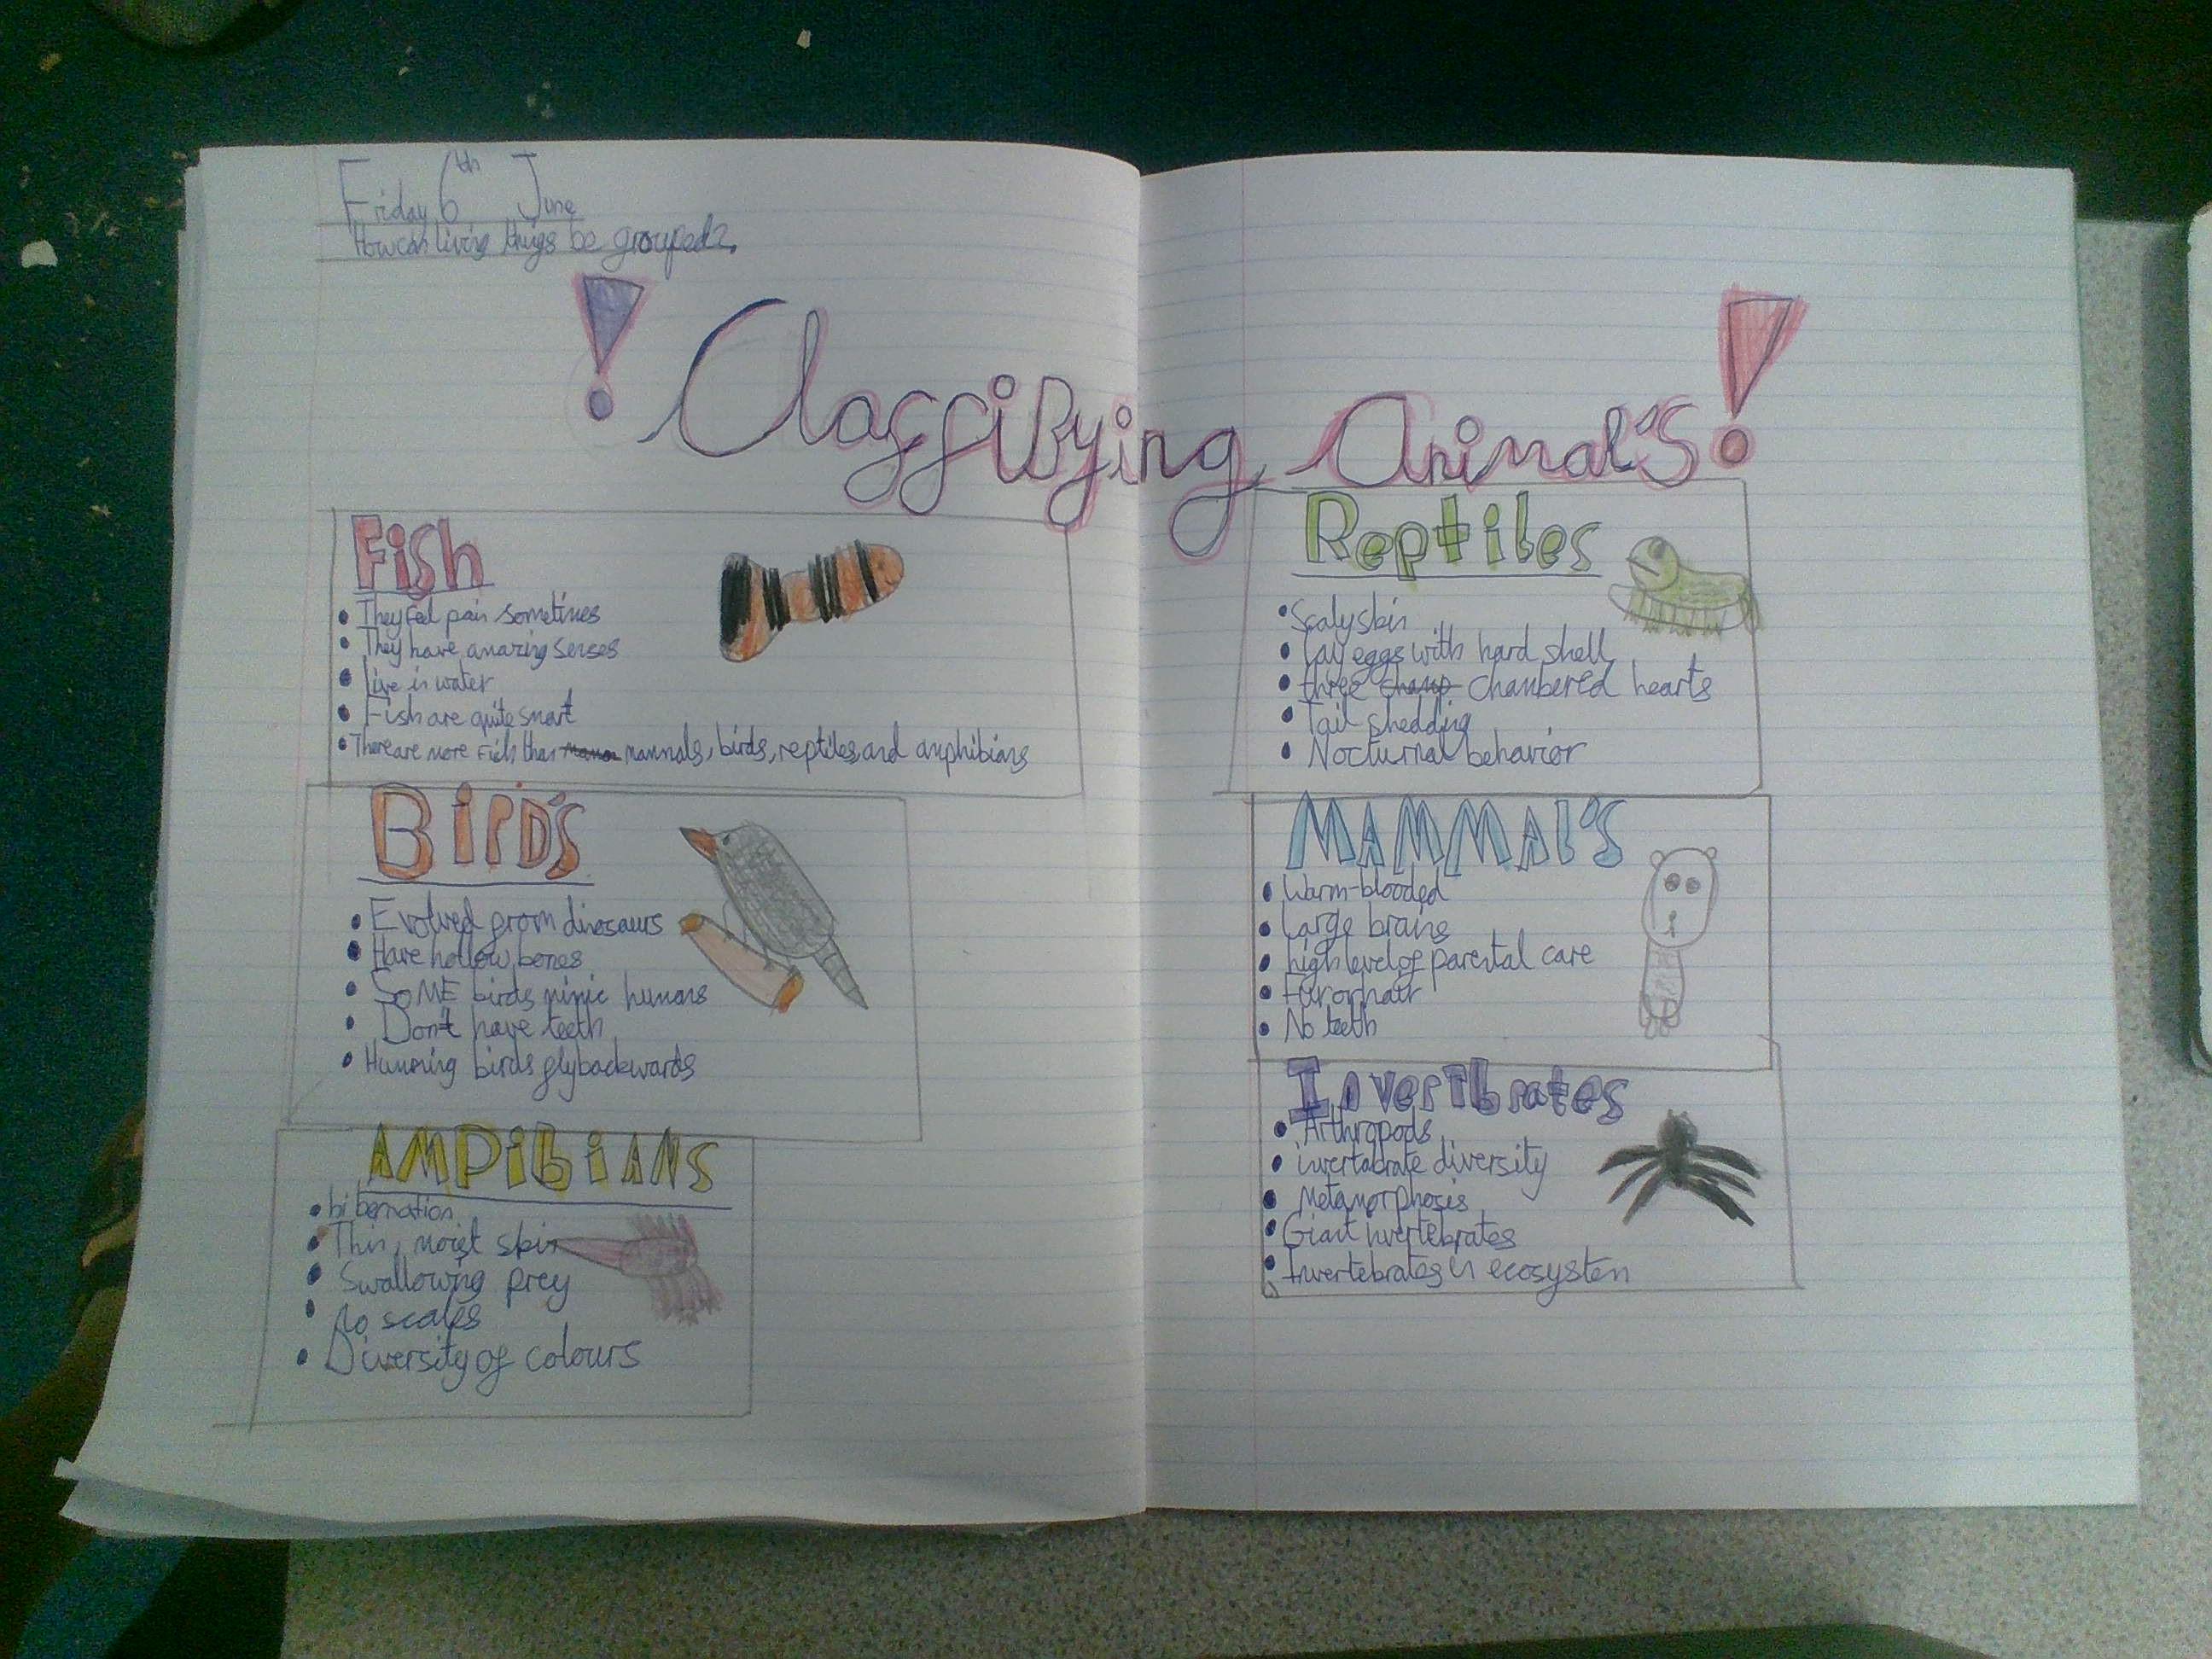 Friday 6th June
How can living things be grouped?
! Classifying Animal's!
Fish
• They feel pain sometimes
• They have amazing senses
• Live in water
• Fish are quite smart
• There are more fish than mammals, birds, reptiles, and amphibians
BIRD'S
• Evolved from dinosaurs
• Have hollow bones
• SOME birds mimic humans
• Don't have teeth
• Humming birds fly backwards
AMPIBIANS
• hibernation
• Thin, moist skin
• Swallowing prey
• no scales
• Diversity of colours
Reptiles
• Scaly skin
• Lay eggs with hard shell
• three champ chambered hearts
• Tail shedding
• Nocturnal behavior
MAMMAL'S
• Warm-blooded
• Large brains
• high level of parental care
• Fur or hair
• No teeth
Invertibrates
• Arthropods
• invertabrate diversity
• Metamorphosis
• Giant invertebrates
• Invertebrates in ecosystem